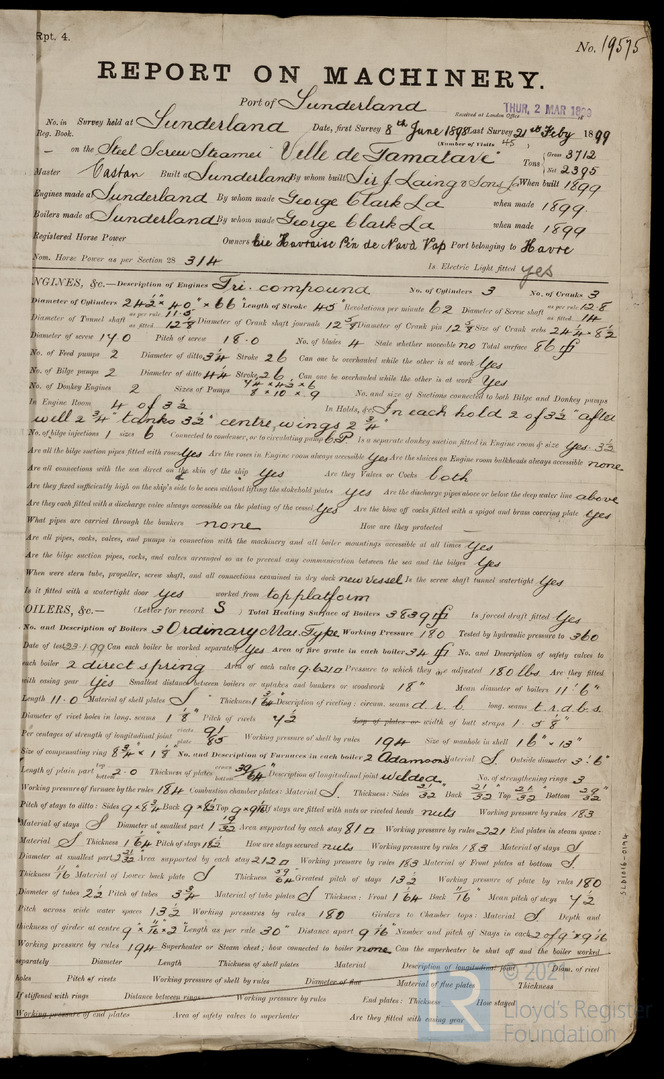 Rpt. 4.
No. 19575
REPORT ON MACHINERY.
Port of Sunderland
Received at London Office THUR, 2 MAR 1899
No. in Reg. Book. Survey held at Sunderland Date, first Survey 8th June 1898 Last Survey 21st Feby 1899
(Number of Visits 45)
on the Steel Screw Steamer "Ville de Tamatave" Tons { Gross 3712 Net 2395
Master Vastan Built at Sunderland By whom built Sir J. Laing & Sons Ld When built 1899
Engines made at Sunderland By whom made George Clark Ld when made 1899
Boilers made at Sunderland By whom made George Clark Ld when made 1899
Registered Horse Power Owners Cie Havraise Pin de Nava Vap Port belonging to Havre
Nom. Horse Power as per Section 28 314 Is Electric Light fitted yes
NGINES, &c.—Description of Engines Tri. compound No. of Cylinders 3 No. of Cranks 3
Diameter of Cylinders 24½" × 40" × 66" Length of Stroke 45" Revolutions per minute 62 Diameter of Screw shaft as per rule 12.8 as fitted 14
Diameter of Tunnel shaft as per rule 11.5 as fitted 12⅝ Diameter of Crank shaft journals 12⅝ Diameter of Crank pin 12⅝ Size of Crank webs 24½ × 8½
Diameter of screw 17.0 Pitch of screw 18.0 No. of blades 4 State whether moveable no Total surface 86 ft
No. of Feed pumps 2 Diameter of ditto 3¼ Stroke 26 Can one be overhauled while the other is at work Yes
No. of Bilge pumps 2 Diameter of ditto 4¼ Stroke 26 Can one be overhauled while the other is at work Yes
No. of Donkey Engines 2 Sizes of Pumps 8 × 10 × 9 No. and size of Suctions connected to both Bilge and Donkey pumps
In Engine Room 4 of 3½ In Holds, &c. In each hold 2 of 3½" after
well 2¾" tanks 3½" centre, wings 2¾"
No. of bilge injections 1 sizes 6 Connected to condenser, or to circulating pump CP Is a separate donkey suction fitted in Engine room & size Yes. 3½
Are all the bilge suction pipes fitted with roses Yes Are the roses in Engine room always accessible Yes Are the sluices on Engine room bulkheads always accessible none
Are all connections with the sea direct on the skin of the ship Yes Are they Valves or Cocks both
Are they fixed sufficiently high on the ship's side to be seen without lifting the stokehold plates yes Are the discharge pipes above or below the deep water line above
Are they each fitted with a discharge valve always accessible on the plating of the vessel Yes Are the blow off cocks fitted with a spigot and brass covering plate Yes
What pipes are carried through the bunkers none How are they protected —
Are all pipes, cocks, valves, and pumps in connection with the machinery and all boiler mountings accessible at all times Yes
Are the bilge suction pipes, cocks, and valves arranged so as to prevent any communication between the sea and the bilges Yes
When were stern tube, propeller, screw shaft, and all connections examined in dry dock new vessel Is the screw shaft tunnel watertight Yes
Is it fitted with a watertight door yes worked from top platform
OILERS, &c.— (Letter for record S) Total Heating Surface of Boilers 3839 ft Is forced draft fitted Yes
No. and Description of Boilers 3 Ordinary Mar. Type Working Pressure 180 Tested by hydraulic pressure to 360
Date of test 23.1.99 Can each boiler be worked separately Yes Area of fire grate in each boiler 34 ft No. and Description of safety valves to
each boiler 2 direct spring Area of each valve 9.62 Pressure to which they are adjusted 180 lbs. Are they fitted
with easing gear yes Smallest distance between boilers or uptakes and bunkers or woodwork 18" Mean diameter of boilers 11'6"
Length 11.0 Material of shell plates S Thickness Description of riveting: circum. seams d.r.l. long. seams t.r.d.b.s.
Diameter of rivet holes in long. seams 1⅛" Pitch of rivets 7½ Lap of plates or width of butt straps 1.5⅛"
Per centages of strength of longitudinal joint rivets 91 plate 85 Working pressure of shell by rules 194 Size of manhole in shell 16" × 13"
Size of compensating ring 8¾ × 1⅛ No. and Description of Furnaces in each boiler 2 Adamsons Material S Outside diameter 3'6"
Length of plain part top bottom 2.0 Thickness of plates crown bottom 39/64 Description of longitudinal joint welded No. of strengthening rings 3
Working pressure of furnace by the rules 184 Combustion chamber plates: Material S Thickness: Sides 21/32 Back 21/32 Top 21/32 Bottom 29/32
Pitch of stays to ditto: Sides 9 × 8¾ Back 9 × 8½ Top If stays are fitted with nuts or riveted heads nuts Working pressure by rules 183
Material of stays S Diameter at smallest part 1 19/32 Area supported by each stay 81 Working pressure by rules 221 End plates in steam space:
Material S Thickness 1 Pitch of stays 18½ How are stays secured nuts Working pressure by rules 183 Material of stays S
Diameter at smallest part 2 21/32 Area supported by each stay 212 Working pressure by rules 183 Material of Front plates at bottom S
Thickness 11/16 Material of Lower back plate S Thickness 59/64 Greatest pitch of stays 13½ Working pressure of plate by rules 180
Diameter of tubes 2½ Pitch of tubes 3¾ Material of tube plates S Thickness: Front 1 Back 11/16 Mean pitch of stays 7½
Pitch across wide water spaces 13½ Working pressures by rules 180 Girders to Chamber tops: Material S Depth and
thickness of girder at centre Length as per rule 30" Distance apart Number and pitch of Stays in each 2 of 9"
Working pressure by rules 194 Superheater or Steam chest; how connected to boiler none Can the superheater be shut off and the boiler worked
separately Diameter Length Thickness of shell plates Material Description of longitudinal joint Diam. of rivet
holes Pitch of rivets Working pressure of shell by rules Diameter of flue Material of flue plates Thickness
If stiffened with rings Distance between rings Working pressure by rules End plates: Thickness How stayed
Working pressure of end plates Area of safety valves to superheater Are they fitted with easing gear
SLD1016-0194
© 2021
LR
Lloyd's Register
Foundation